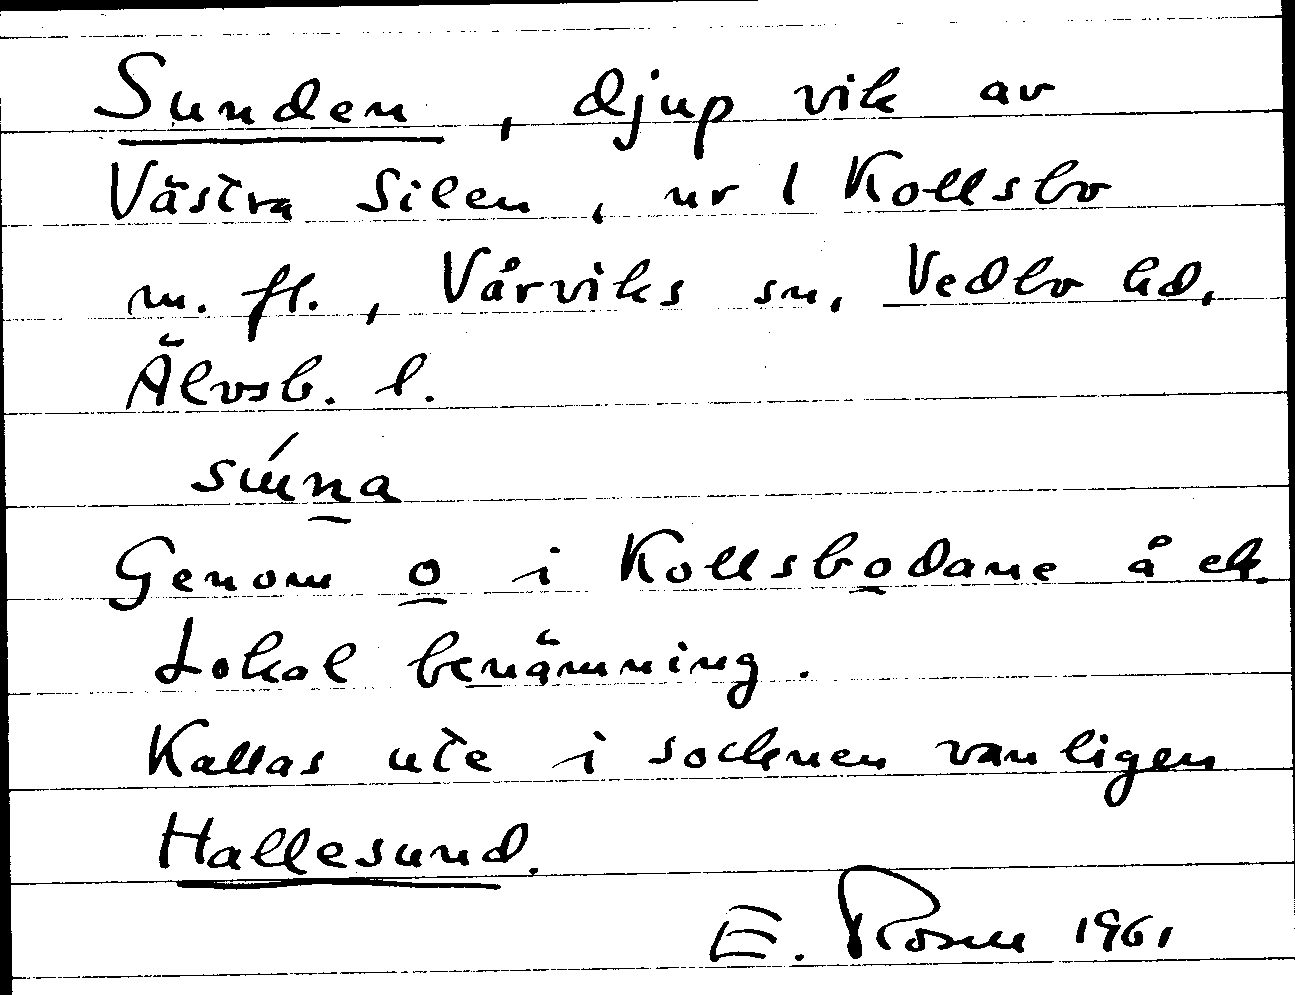 Sunden, djup vik av
Västra Silen, ur 1 Kollsbo
m. fl., Vårviks sn, Vedbo hd,
Älvsb. l.
súna
Genom o i Kollsbodane å ek.
Lokal benämning.
Kallas ute i socknen vanligen
Hallesund.
E. Rosen 1961